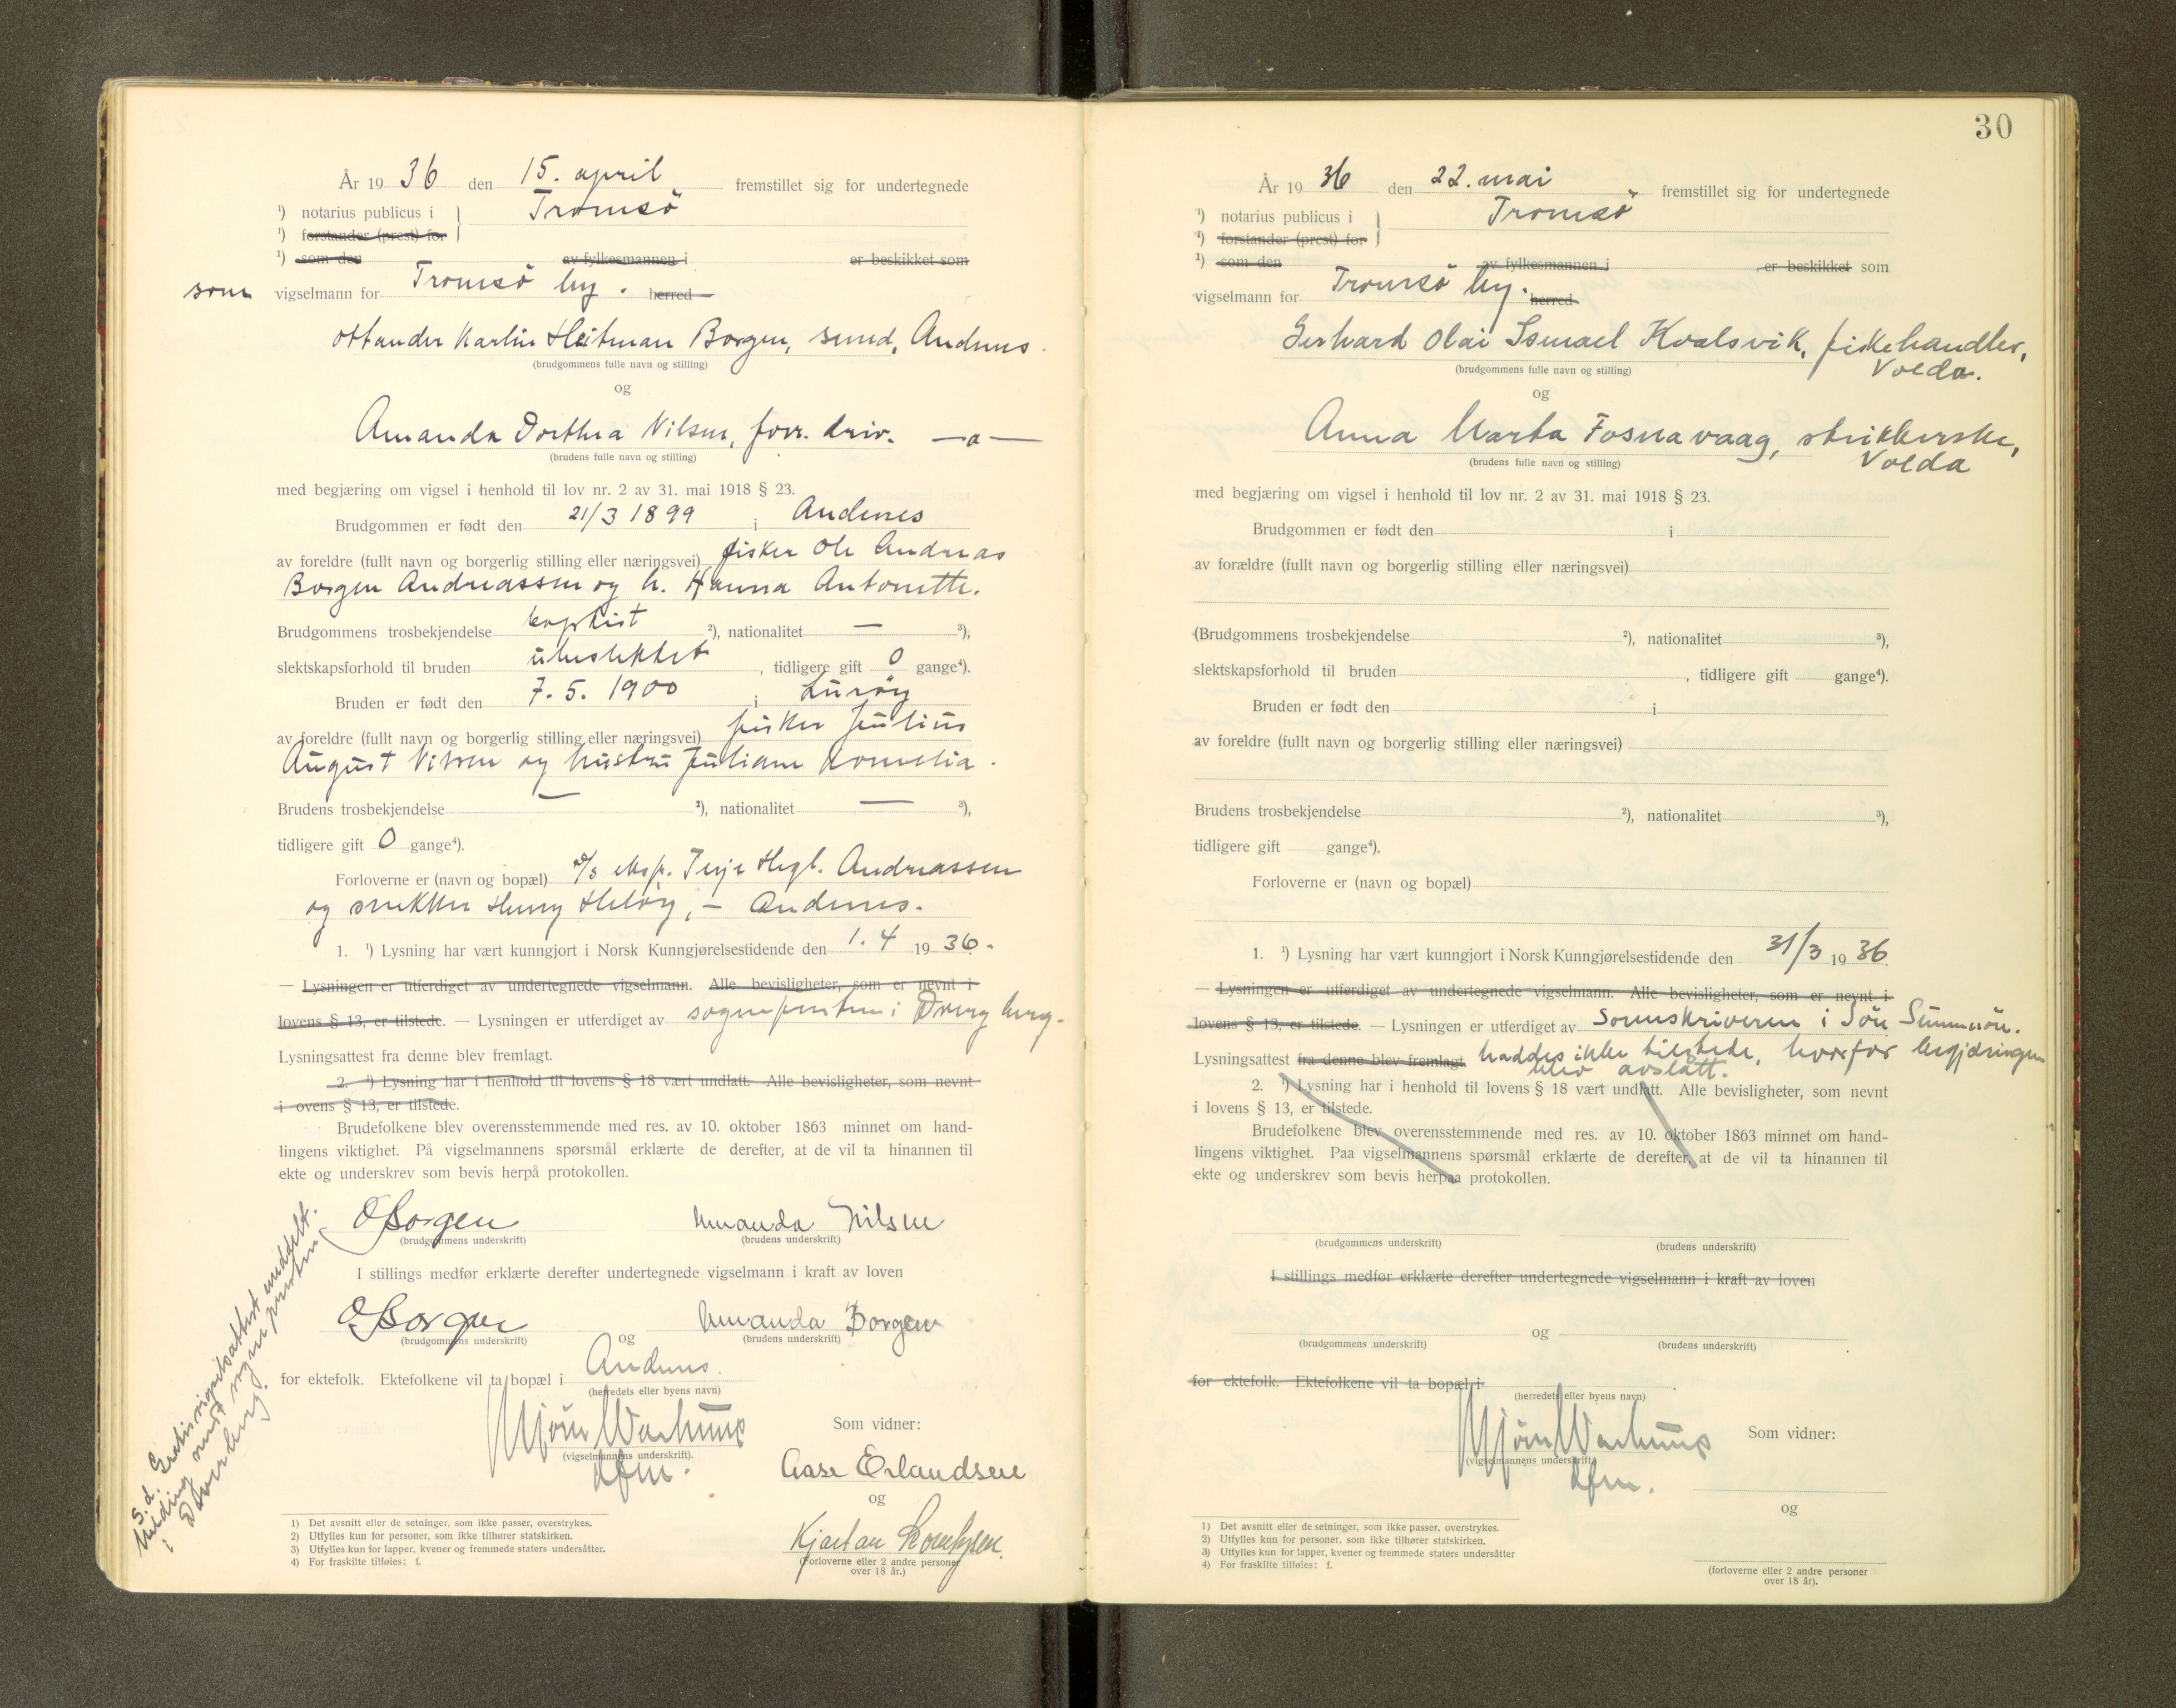 År 1936 den 15. april fremstillet sig for undertegnede
¹) notarius publicus i } Tromsö
¹) forstander (prest) for
¹) som den av fylkesmannen i er beskikket som
som vigselmann for Tromsö by. herred
Ottander Karlin Heitman Borgen, smed, Andenes.
(brudgommens fulle navn og stilling)
og
Amanda Dorthea Nilsen, forr. driv. —a—
(brudens fulle navn og stilling)
med begjæring om vigsel i henhold til lov nr. 2 av 31. mai 1918 § 23.
Brudgommen er født den 21/3 1899 i Andenes
av foreldre (fullt navn og borgerlig stilling eller næringsvei) fisker Ole Andreas
Borgen Andreassen og h. Hanna Antonette.
Brudgommens trosbekjendelse baptist ²), nationalitet — ³),
slektskapsforhold til bruden ubeslektet, tidligere gift 0 gange⁴).
Bruden er født den 7. 5. 1900 i Luröy
av foreldre (fullt navn og borgerlig stilling eller næringsvei) fisker Julius
August Nilsen og hustru Juliane Kornelia.
Brudens trosbekjendelse — ²), nationalitet — ³),
tidligere gift 0 gange⁴).
Forloverne er (navn og bopæl) d/s eksp. Terje Hegl. Andreassen
og snekker Henry Helöy, – Andenes.
1. ¹) Lysning har vært kunngjort i Norsk Kunngjørelsestidende den 1. 4 1936.
— Lysningen er utferdiget av undertegnede vigselmann. Alle bevisligheter, som er nevnt i
lovens § 13, er tilstede. — Lysningen er utferdiget av sognepresten i Dverg berg.
Lysningsattest fra denne blev fremlagt.
2. ¹) Lysning har i henhold til lovens § 18 vært undlatt. Alle bevisligheter, som nevnt
i ovens § 13, er tilstede.
Brudefolkene blev overensstemmende med res. av 10. oktober 1863 minnet om hand-
lingens viktighet. På vigselmannens spørsmål erklærte de derefter, at de vil ta hinannen til
ekte og underskrev som bevis herpå protokollen.
O Borgen Amanda Nilsen
(brudgommens underskrift) (brudens underskrift)
I stillings medfør erklærte derefter undertegnede vigselmann i kraft av loven
O Borgen og Amanda Borgen
(brudgommens underskrift) (brudens underskrift)
for ektefolk. Ektefolkene vil ta bopæl i Andenes.
(herredets eller byens navn)
Som vidner:
(vigselmannens underskrift).
dfm.
Aase Erlandsen
og
Kjartan
(Forloverne eller 2 andre personer
over 18 år.)
S. d. Gratis vigselsattest meddelt.
Melding sendt sognepresten
i Dverberg.
1) Det avsnitt eller de setninger, som ikke passer, overstrykes.
2) Utfylles kun for personer, som ikke tilhører statskirken.
3) Utfylles kun for lapper, kvener og fremmede staters undersåtter.
4) For fraskilte tilføies: f.
30
År 1936 den 22. mai fremstillet sig for undertegnede
¹) notarius publicus i } Tromsö
¹) forstander (prest) for
¹) som den av fylkesmannen i er beskikket som
vigselmann for Tromsö by. herred
Gerhard Olai Ismael Kvalsvik, fiskehandler,
Volda.
(brudgommens fulle navn og stilling)
og
Anna Marta Fosnavaag, strikkerske,
Volda
(brudens fulle navn og stilling)
med begjæring om vigsel i henhold til lov nr. 2 av 31. mai 1918 § 23.
Brudgommen er født den i
av forældre (fullt navn og borgerlig stilling eller næringsvei)
(Brudgommens trosbekjendelse ²), nationalitet ³),
slektskapsforhold til bruden , tidligere gift gange⁴).
Bruden er født den i
av foreldre (fullt navn og borgerlig stilling eller næringsvei)
Brudens trosbekjendelse ²), nationalitet ³),
tidligere gift gange⁴).
Forloverne er (navn og bopæl)
1. ¹) Lysning har vært kunngjort i Norsk Kunngjørelsestidende den 31/3 1936.
— Lysningen er utferdiget av undertegnede vigselmann. Alle bevisligheter, som er nevnt i
lovens § 13, er tilstede. — Lysningen er utferdiget av Sorenskriveren i Söre Sunnmöre.
Lysningsattest fra denne blev fremlagt. haddes ikke tilstede, hvorfor begjæringen
blev avslått.
2. ¹) Lysning har i henhold til lovens § 18 vært undlatt. Alle bevisligheter, som nevnt
i lovens § 13, er tilstede.
Brudefolkene blev overensstemmende med res. av 10. oktober 1863 minnet om hand-
lingens viktighet. Paa vigselmannens spørsmål erklærte de derefter, at de vil ta hinannen til
ekte og underskrev som bevis herpaa protokollen.
(brudgommens underskrift) (brudens underskrift)
I stillings medfør erklærte derefter undertegnede vigselmann i kraft av loven
og
(brudgommens underskrift) (brudens underskrift)
for ektefolk. Ektefolkene vil ta bopæl i
(herredets eller byens navn)
Som vidner:
(vigselmannens underskrift)
dfm.
og
(forloverne eller 2 andre personer
over 18 år).
1) Det avsnitt eller de setninger, som ikke passer, overstrykes.
2) Utfylles kun for personer, som ikke tilhører statskirken.
3) Utfylles kun for lapper, kvener og fremmede staters undersåtter
4) For fraskilte tilføies: f.